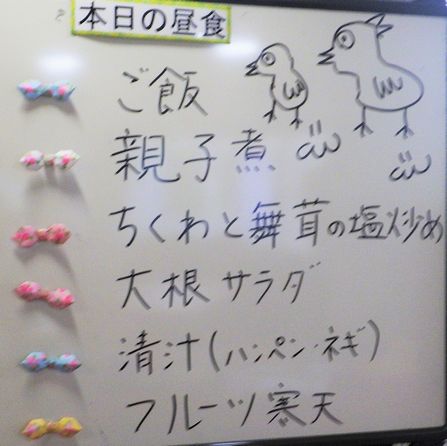 本日の昼食
ご飯
親子煮
ちくわと舞茸の塩炒め
大根サラダ
清汁(ハンペン・ネギ)
フルーツ寒天